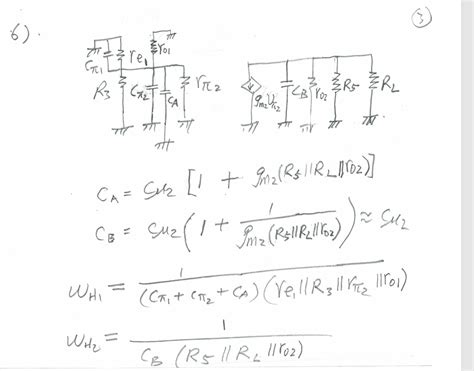 3
6).
Cπ1 re1 r01
R3 Cπ2 CA rπ2
gm2Vπ2 CB r02 R5 RL
CA = Cμ2 [1 + gm2(R5||RL||r02)]
CB = Cμ2 (1 + 1/gm2(R5||RL||r02)) ≈ Cμ2
WH1 = 1/(Cπ1 + Cπ2 + CA)(re1||R3||rπ2||r01)
WH2 = 1/CB (R5||RL||r02)